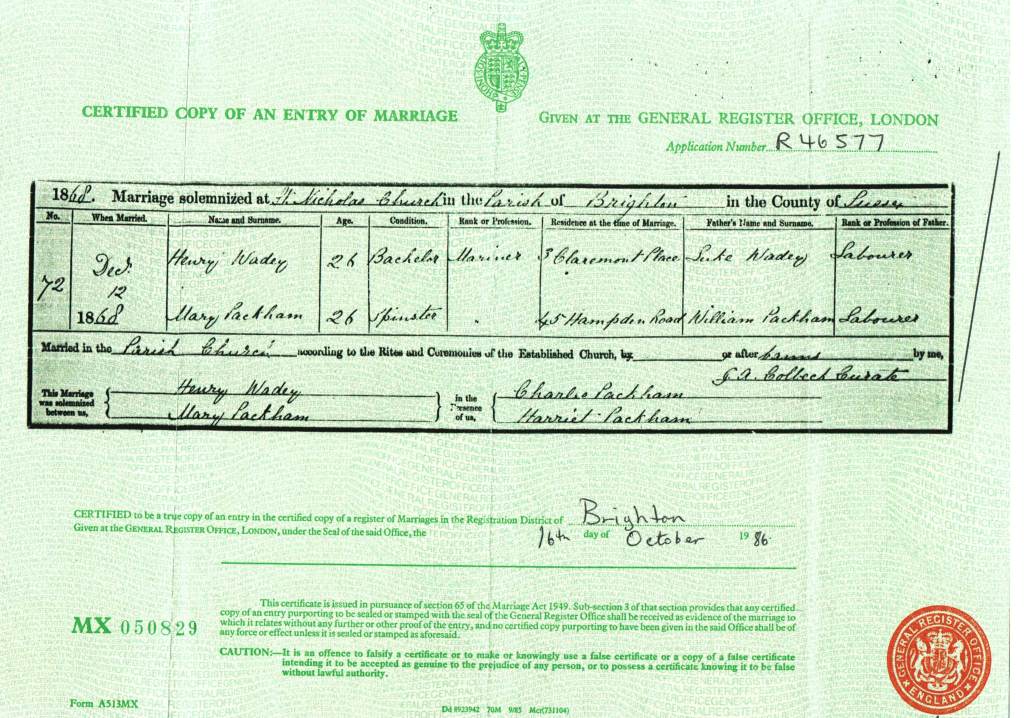 CERTIFIED COPY OF AN ENTRY OF MARRIAGE
GIVEN AT THE GENERAL REGISTER OFFICE, LONDON
Application Number R46577
1868. Marriage solemnized at St. Nicholas Church in the Parish of Brighton in the County of Sussex
No. When Married. Name and Surname. Age. Condition. Rank or Profession. Residence at the time of Marriage. Father's Name and Surname. Rank or Profession of Father.
72 Decr. 12 1868
Henry Wadey 26 Bachelor Mariner 3 Claremont Place Luke Wadey Labourer
Mary Packham 26 Spinster 45 Hampden Road William Packham Labourer
Married in the Parish Church according to the Rites and Ceremonies of the Established Church, by or after banns by me,
J. A. Colbeck Curate
This Marriage was solemnized between us,
Henry Wadey
Mary Packham
in the Presence of us,
Charles Packham
Harriet Packham
CERTIFIED to be a true copy of an entry in the certified copy of a register of Marriages in the Registration District of Brighton
Given at the GENERAL REGISTER OFFICE, LONDON, under the Seal of the said Office, the 16th day of October 1986.
MX 050829
This certificate is issued in pursuance of section 65 of the Marriage Act 1949. Sub-section 3 of that section provides that any certified
copy of an entry purporting to be sealed or stamped with the seal of the General Register Office shall be received as evidence of the marriage to
which it relates without any further or other proof of the entry, and no certified copy purporting to have been given in the said Office shall be of
any force or effect unless it is sealed or stamped as aforesaid.
CAUTION:—It is an offence to falsify a certificate or to make or knowingly use a false certificate or a copy of a false certificate
intending it to be accepted as genuine to the prejudice of any person, or to possess a certificate knowing it to be false
without lawful authority.
GENERAL REGISTER OFFICE
ENGLAND
Form A513MX
Dd 8923942 70M 9/85 Mcr(731104)